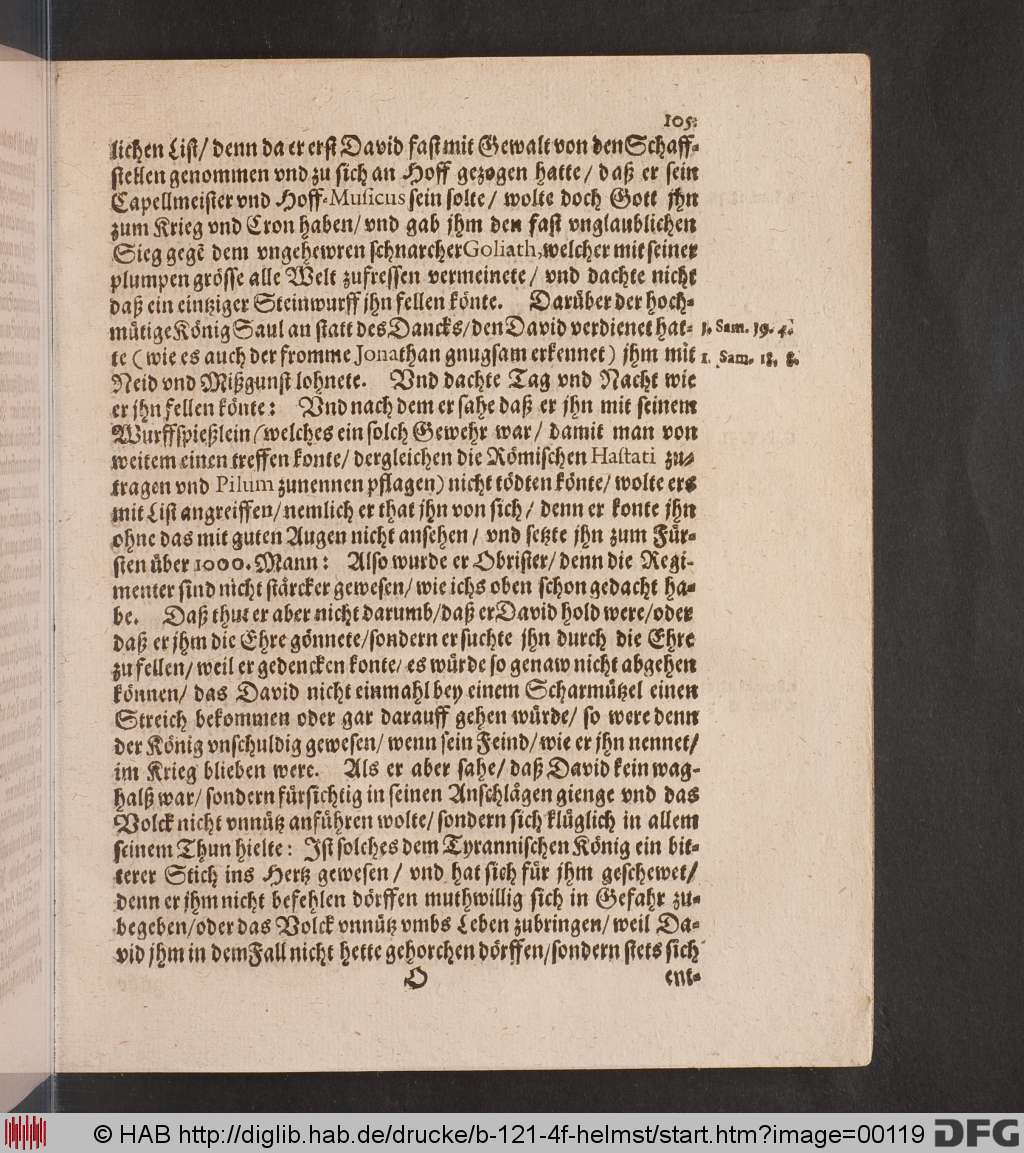 105.
lichen List/ denn da er erst David fast mit Gewalt von den Schaff-
stellen genommen vnd zu sich an Hoff gezogen hatte/ daß er sein
Capellmeister vnd Hoff-Musicus sein solte/ wolte doch Gott jhn
zum Krieg vnd Cron haben/ vnd gab jhm den fast vnglaublichen
Sieg gegē dem vngehewren schnarcher Goliath, welcher mit seiner
plumpen grösse alle Welt zufressen vermeinete/ vnd dachte nicht
daß ein eintziger Steinwurff jhn fellen könte. Darüber der hoch-
mütige König Saul an statt des Dancks/ den David verdienet hat- 1. Sam. 19. 4.
te (wie es auch der fromme Jonathan gnugsam erkennet) jhm mit 1. Sam. 18. 8.
Neid vnd Mißgunst lohnete. Vnd dachte Tag vnd Nacht wie
er jhn fellen könte: Vnd nach dem er sahe daß er jhn mit seinem
Wurffspießlein (welches ein solch Gewehr war/ damit man von
weitem einen treffen konte/ dergleichen die Römischen Hastati zu-
tragen vnd Pilum zunennen pflagen) nicht tödten könte/ wolte ers
mit List angreiffen/ nemlich er that jhn von sich/ denn er konte jhn
ohne das mit guten Augen nicht ansehen/ vnd setzte jhn zum Für-
sten über 1000. Mann: Also wurde er Obrister/ denn die Regi-
menter sind nicht stärcker gewesen/ wie ichs oben schon gedacht ha-
be. Daß thut er aber nicht darumb/ daß er David hold were/ oder
daß er jhm die Ehre gönnete/ sondern er suchte jhn durch die Ehre
zu fellen/ weil er gedencken konte/ es würde so genaw nicht abgehen
können/ das David nicht einmahl bey einem Scharmützel einen
Streich bekommen oder gar darauff gehen würde/ so were denn
der König vnschuldig gewesen/ wenn sein Feind/ wie er jhn nennet/
im Krieg blieben were. Als er aber sahe/ daß David kein wag-
halß war/ sondern fürsichtig in seinen Anschlägen gienge vnd das
Volck nicht vnnütz anführen wolte/ sondern sich klüglich in allem
seinem Thun hielte: Ist solches dem Tyrannischen König ein bit-
terer Stich ins Hertz gewesen/ vnd hat sich für jhm geschewet/
denn er jhm nicht befehlen dörffen muthwillig sich in Gefahr zu-
begeben/ oder das Volck vnnütz vmbs Leben zubringen/ weil Da-
vid jhm in dem Fall nicht hette gehorchen dörffen/ sondern stets sich
O ent-
© HAB http://diglib.hab.de/drucke/b-121-4f-helmst/start.htm?image=00119 DFG